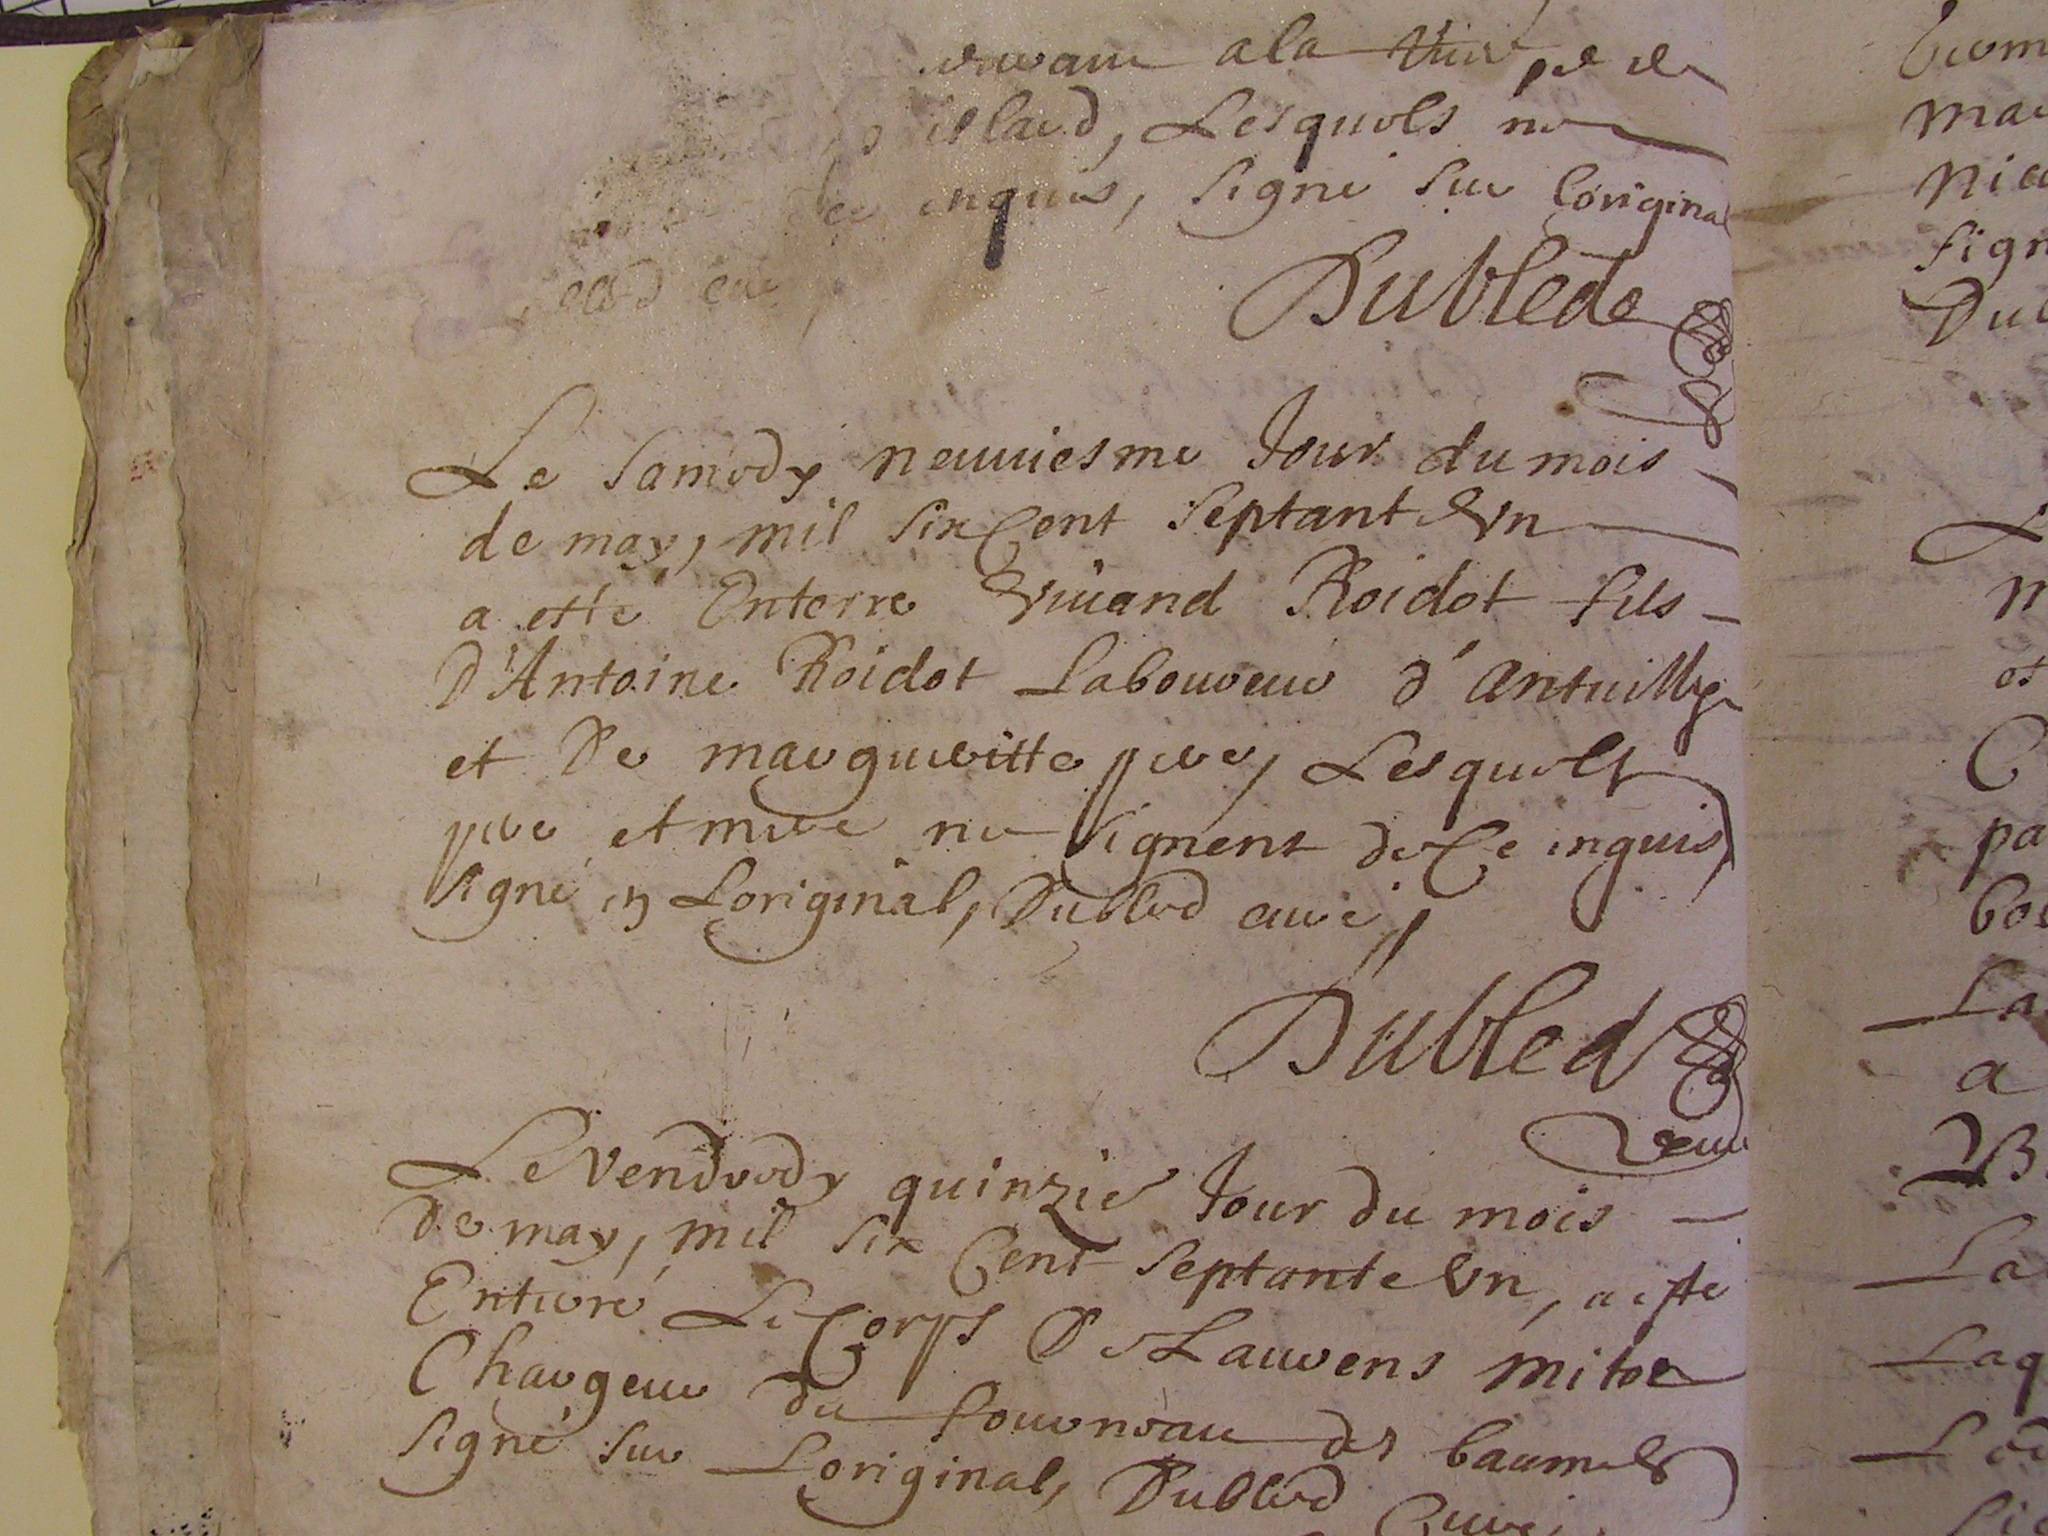 a la
illard, Lesquels ne
de ce enquis, signé sur Lorigina
Dublede
Le Samedy neuuiesme Jour du mois
de may, mil six Cent septant Vn
a esté Enterre Viuand Roidot fils
D'Antoine Roidot Laboureur d'Antuilly
et De margueritte pere, Lesquelz
pere et mere ne signent de Ce inquis,
signé en Loriginal, Dubled curé,
Dubled
Le Vendredy quinzie Jour du mois
De may, mil six Cent septante Vn, a esté
Enterré Le Corps De Laurens
Chargeur du fourneau des baumes
signé sur Loriginal, Dubled Curé,
mar
sign
Dub
et
C
pa
La
a
La
Laq